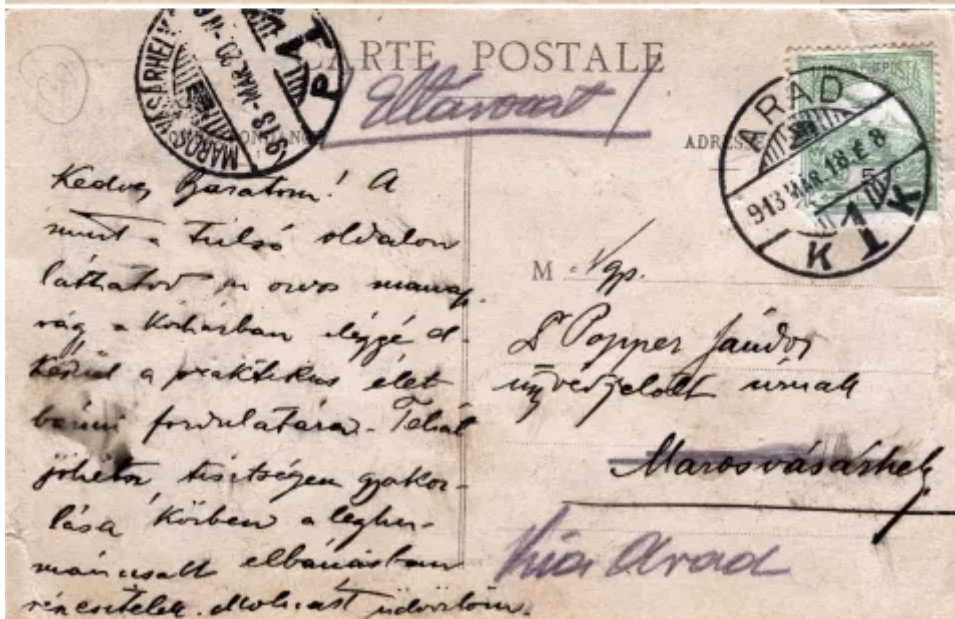 MAROSVÁSÁRHELY
913 MÁR. 20
P
CARTE POSTALE
Eltávozott
ADRESSE
ARAD
913 MÁR. 18. É 8
K 1 K
Kedves Barátom! A
mint a túlsó oldalon
láthatod az orvos manap-
ság a kórházban eléggé el-
készül a praktikus élet
bármi fordulatára. Tehát
jöhetsz tisztségem gyakor-
lása körben a leghu-
mánusabb elbánásban
részesítelek.
M Ngs.
Dr Popper Sándor
ügyvédjelölt úrnak
Marosvásárhely
Arad